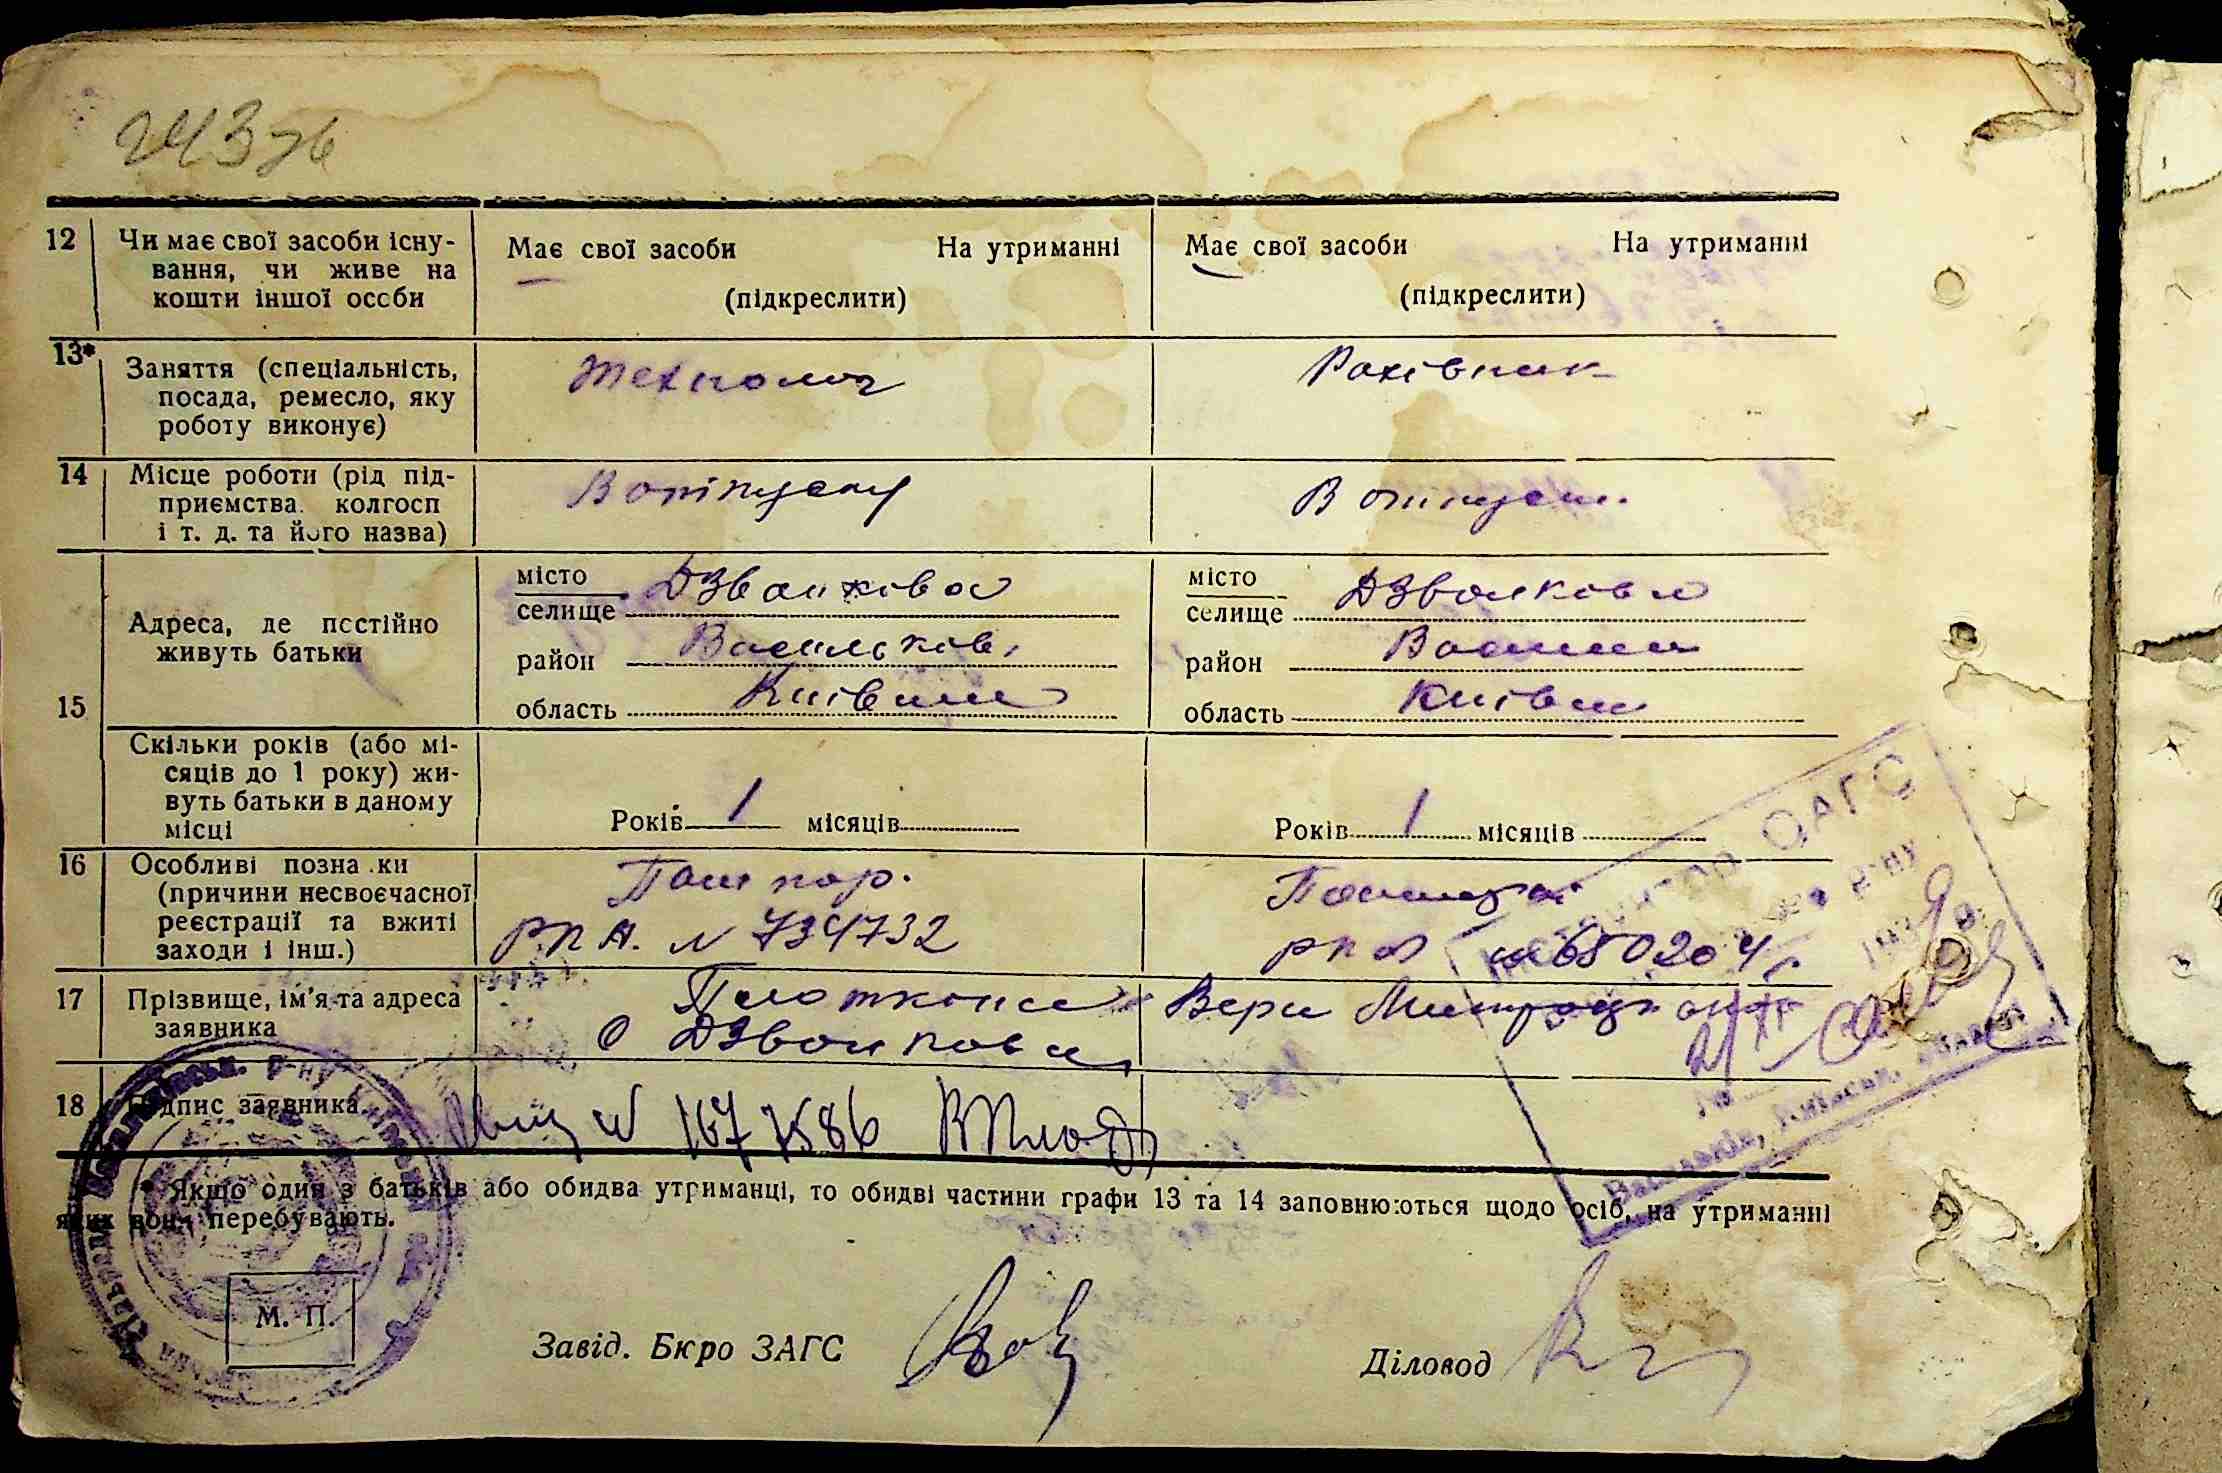 12
Чи має свої засоби існу-
вання, чи живе на
кошти іншої особи
Має свої засоби На утриманні
(підкреслити)
Має свої засоби На утриманні
(підкреслити)
13*
Заняття (спеціальність,
посада, ремесло, яку
роботу виконує)
технолог
Рахівник
14
Місце роботи (рід під-
приємства, колгосп
і т. д. та його назва)
15
Адреса, де постійно
живуть батьки
місто
селище Дзвонкова
район Васильків.
область Київськ
місто
селище Дзвонкова
район
область Київськ
Скільки років (або мі-
сяців до 1 року) жи-
вуть батьки в даному
місці
Років 1 місяців
Років 1 місяців
16
Особливі позначки
(причини несвоєчасної
реєстрації та вжиті
заходи і інш.)
Пашпор.
РПА. N 734732
N 650204
17
Прізвище, ім'я та адреса
заявника
Вера
с Дзвонкова
18
Підпис заявника
* Якщо один з батьків або обидва утриманці, то обидві частини графи 13 та 14 заповнюються щодо осіб, на утриманні
яких вони перебувають.
М. П.
Завід. Бюро ЗАГС
Діловод